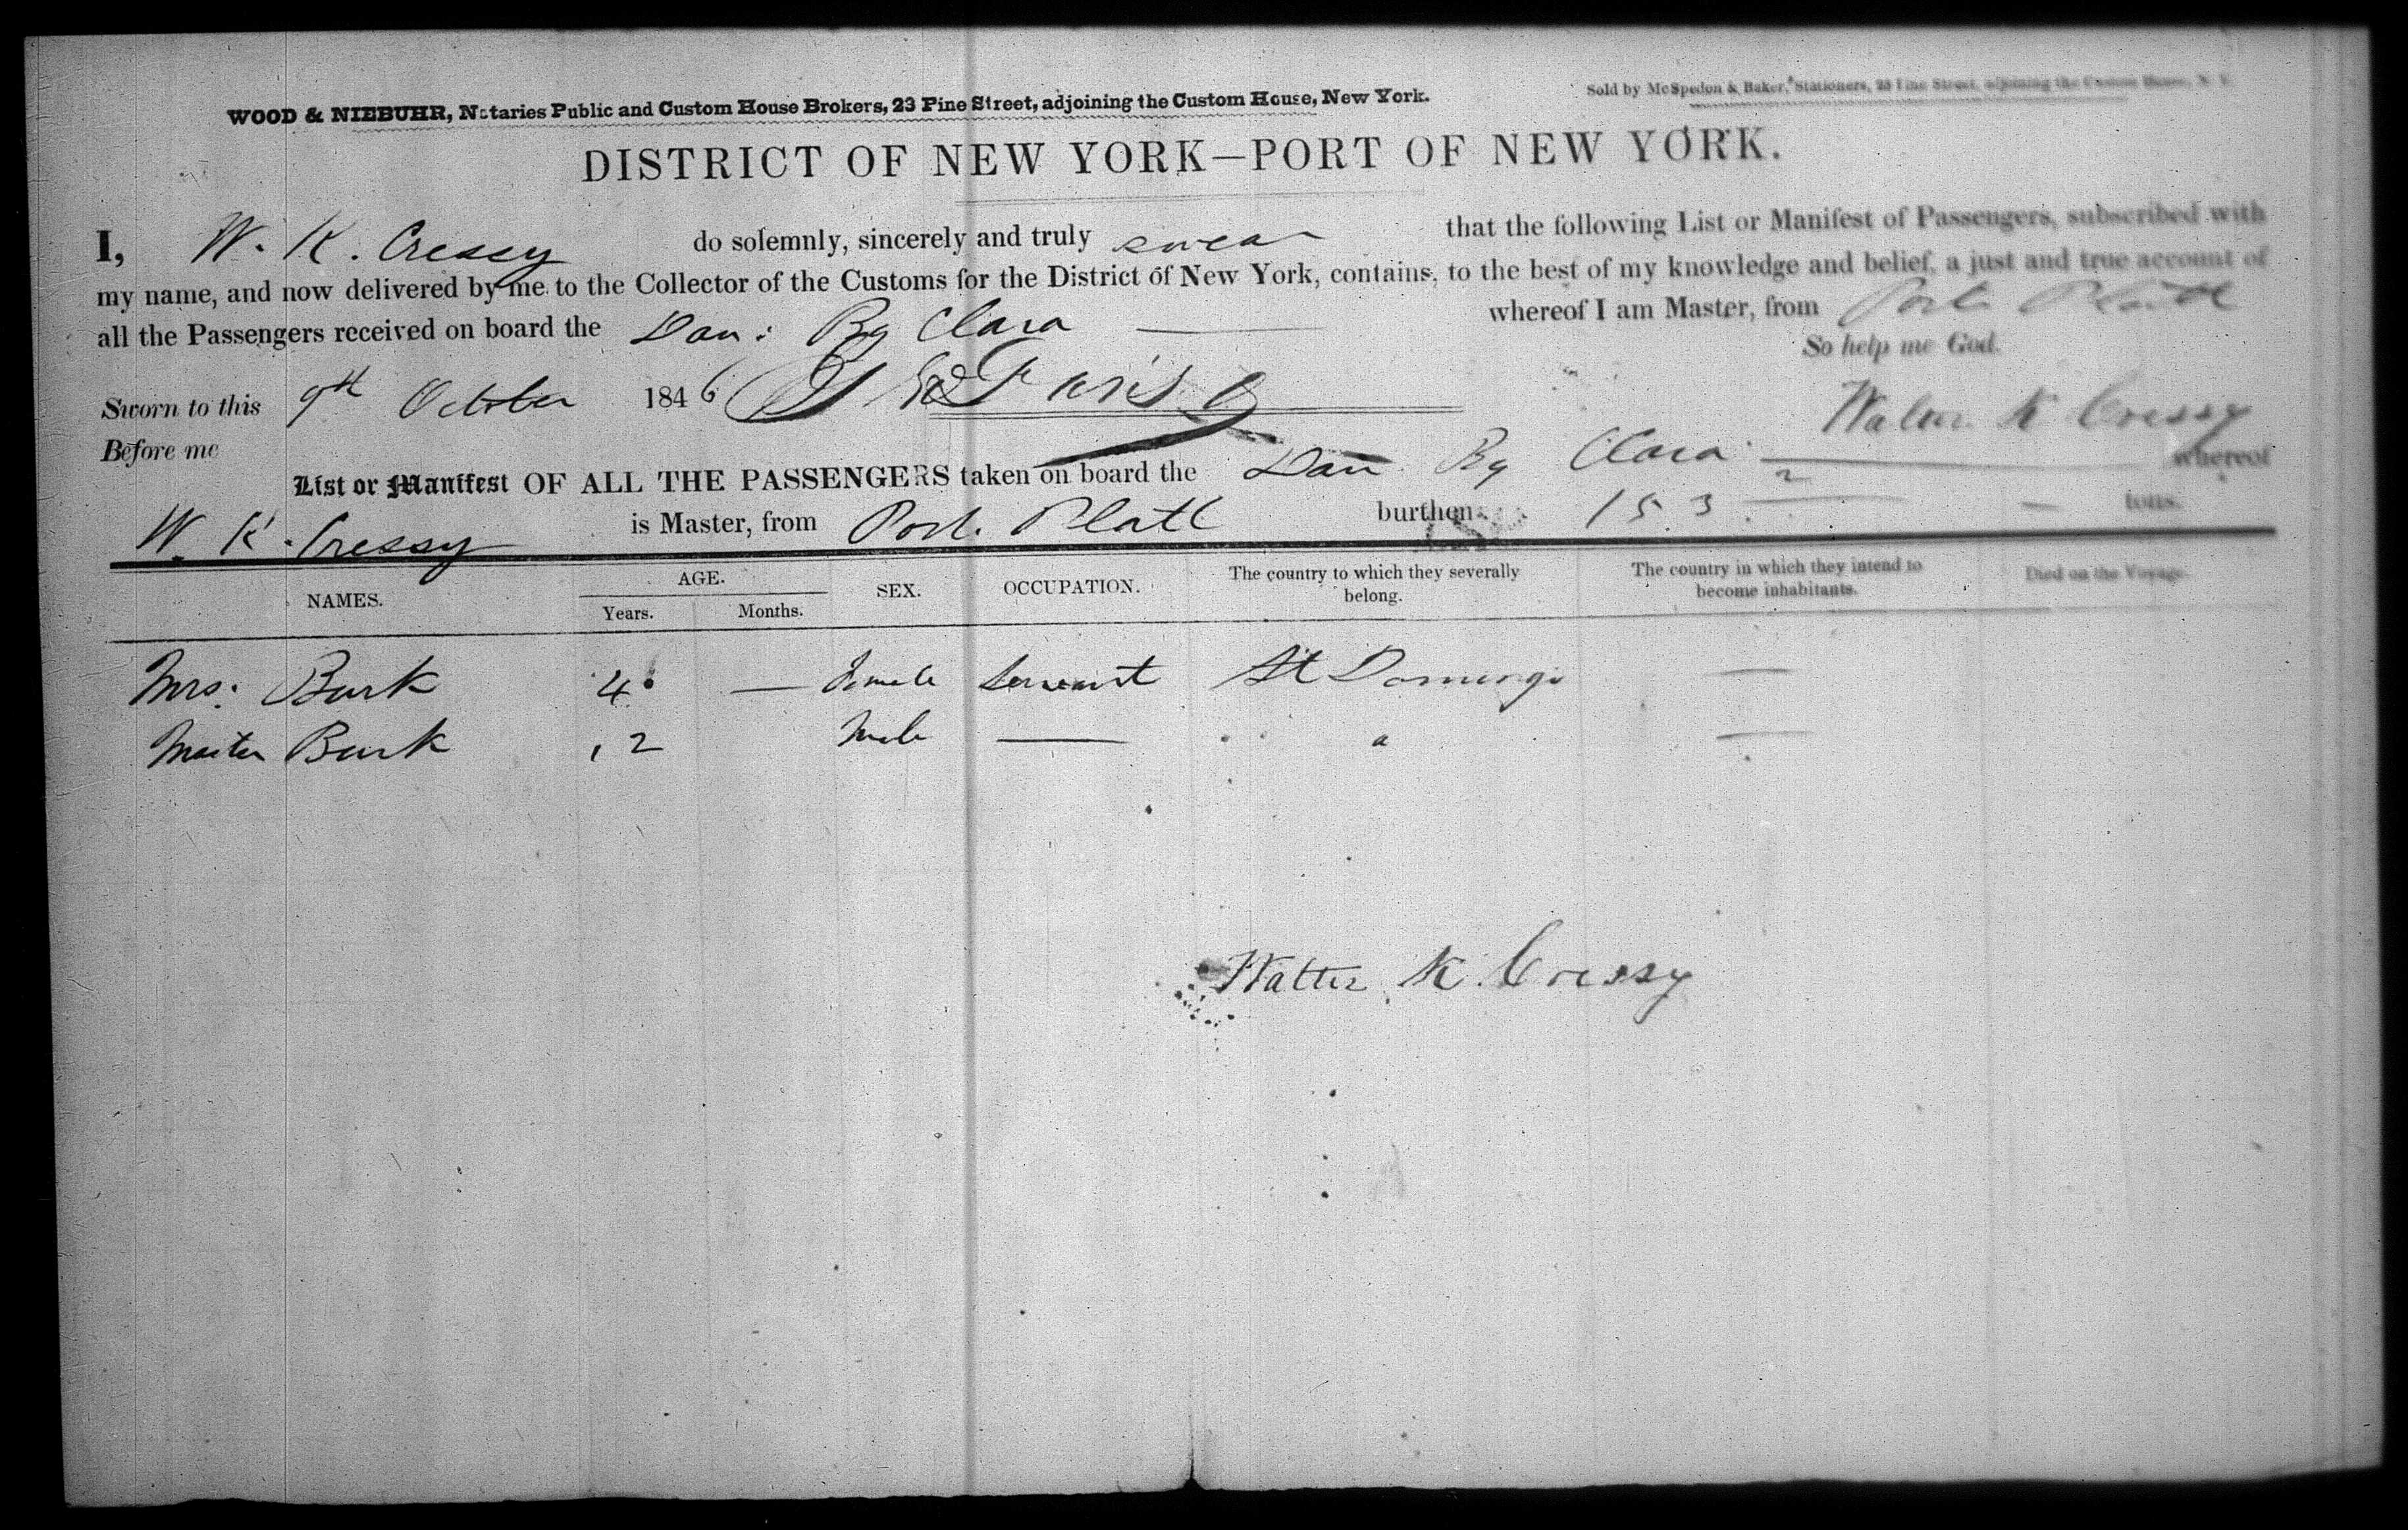 WOOD & NIEBUHR, Notaries Public and Custom House Brokers, 23 Pine Street, adjoining the Custom House, New York.
Sold by McSpedon & Baker, Stationers, 25 Pine Street, adjoining the Custom House, N. Y.
DISTRICT OF NEW YORK—PORT OF NEW YORK.
I, W. K. Cressy do solemnly, sincerely and truly swear that the following List or Manifest of Passengers, subscribed with
my name, and now delivered by me to the Collector of the Customs for the District of New York, contains, to the best of my knowledge and belief, a just and true account of
all the Passengers received on board the Dan: Bg Clara — whereof I am Master, from Port Platt
So help me God.
Sworn to this 9th October 1846
Walter K Cressy
Before me
List or Manifest OF ALL THE PASSENGERS taken on board the Dan Bg Clara whereof
W. K. Cressy is Master, from Port. Platt burthen 153 — tons.
NAMES. AGE. SEX. OCCUPATION. The country to which they severally belong. The country in which they intend to become inhabitants. Died on the Voyage.
Years. Months.
Mrs. Burk 40 — Female Servant St Domingo —
Master Burk 12 Male — " —
Walter K. Cressy